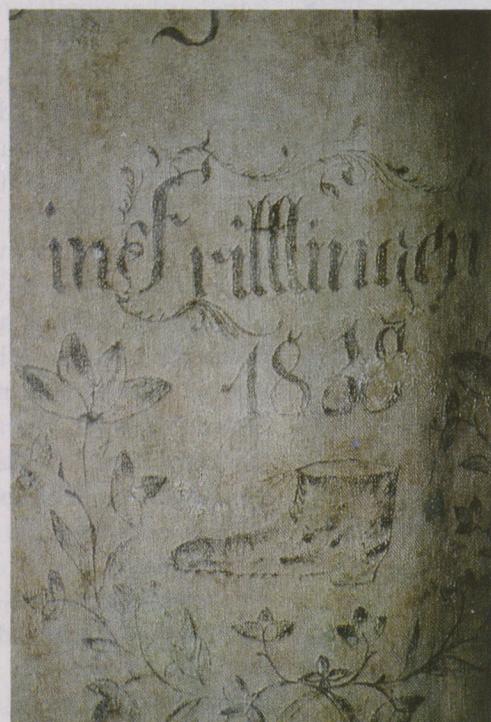 in Frittlingen
1838